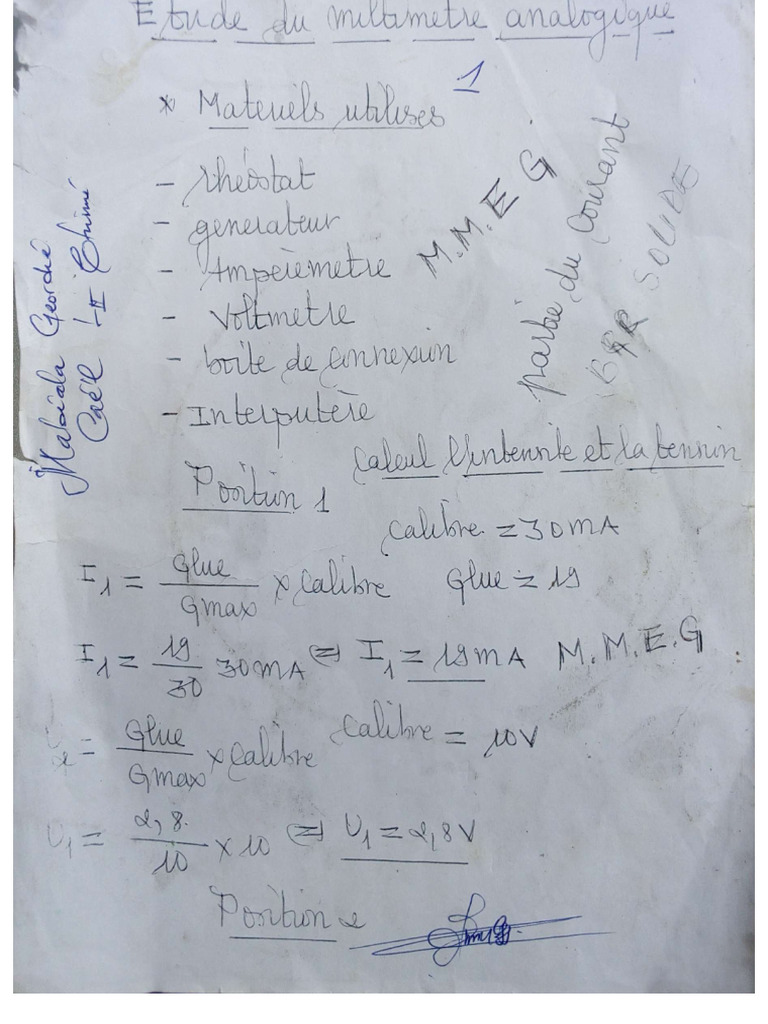 Etude du miltimetre analogique
1
* Materiels utilises
- rhéostat
- generateur
- Ampèremetre
- Voltmetre
- boite de connexion
- Interputère
M.M.E G
partie du Courant
SOLIDE
Mabiala Georché
Caël L II Chimie
Calcul l'intensite et la tension
Position 1
Calibre = 30mA
I1 = Glue/Gmax x Calibre Glue = 19
I1 = 19/30 30mA ⇔ I1 = 19mA M.M.E.G
= Glue/Gmax x Calibre Calibre = 10V
U1 = 2,8/10 x 10 ⇔ U1 = 2,8V
Position 2